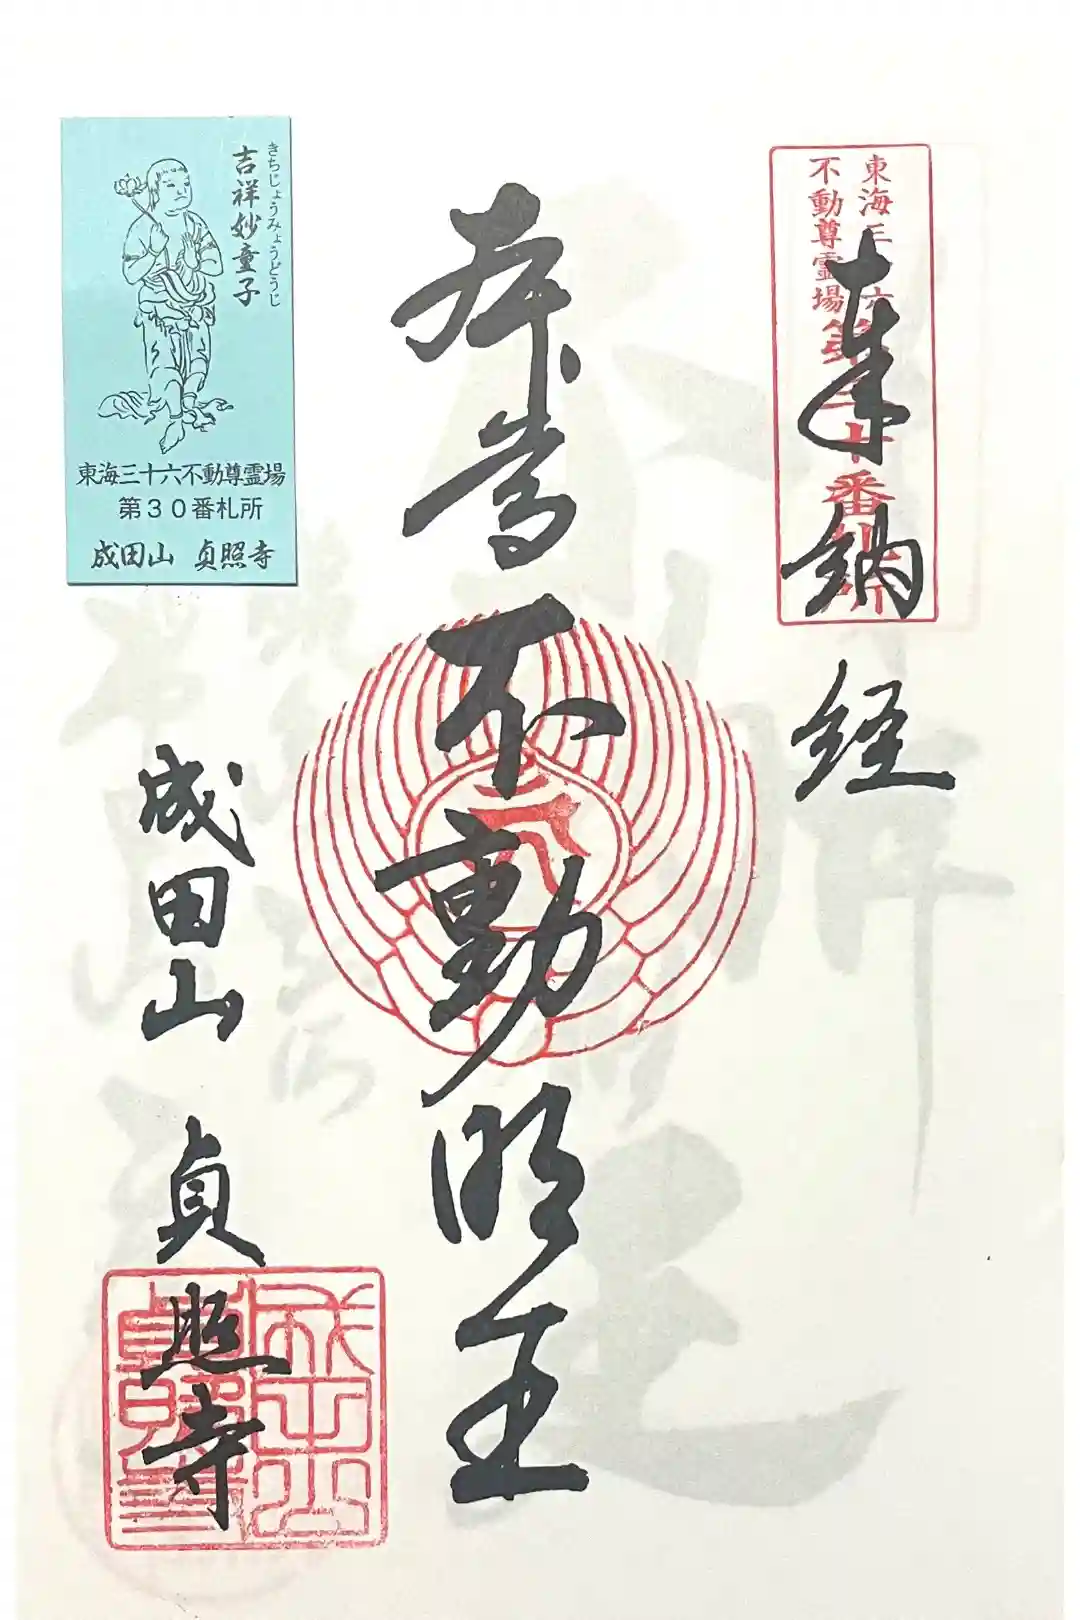 東海三十六
不動尊霊場
第三十番札所
奉納経
本尊不動明王
成田山 貞照寺
吉祥妙童子
きちじょうみょうどうじ
東海三十六不動尊霊場
第30番札所
成田山 貞照寺
成田山
貞照寺